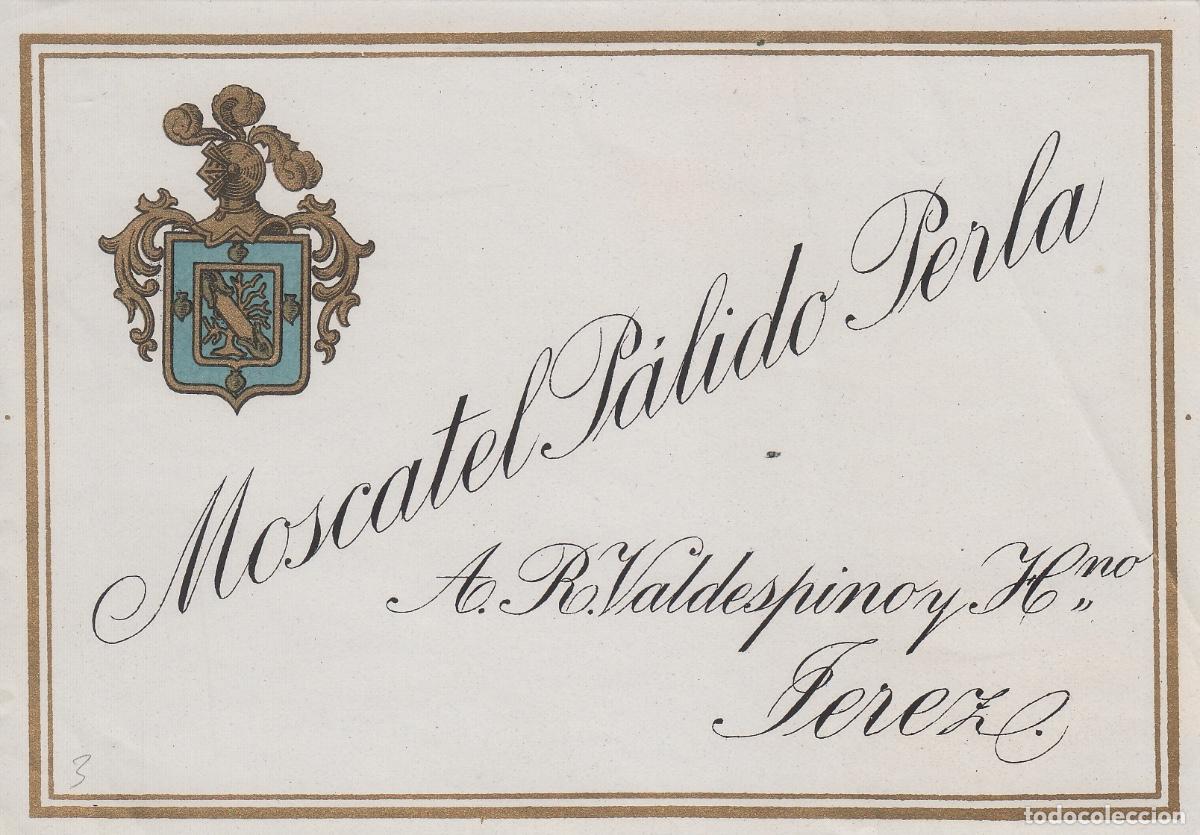 Moscatel Pálido Perla
A. R. Valdespino y H.no
Jerez.
3
todocoleccion